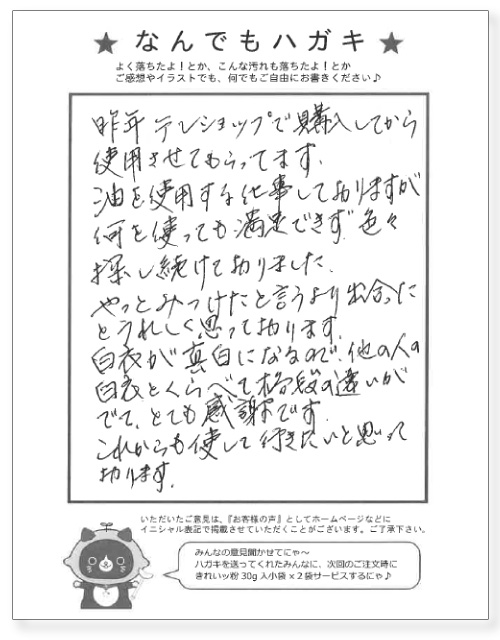 ★ なんでもハガキ ★
よく落ちたよ！とか、こんな汚れも落ちたよ！とか
ご感想やイラストでも、何でもご自由にお書きください♪
昨年テレショップで購入してから
使用させてもらってます.
油を使用する仕事しておりますが
何を使っても満足できず色々
探し続けておりました.
やっとみつけたと言うより出会った
とうれしく思っております.
白衣が真白になるので、他の人の
白衣とくらべて格段の違いが
でて、とても感謝です.
これからも使して行きたいと思って
おります.
いただいたご意見は、『お客様の声』としてホームページなどに
イニシャル表記で掲載させていただくことがございます。ご了承下さい。
みんなの意見聞かせてにゃ〜
ハガキを送ってくれたみんなに、次回のご注文時に
きれいッ粉 30g 入小袋 × 2 袋サービスするにゃ♪